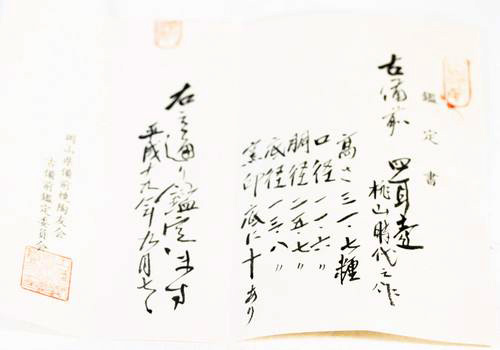 鑑定書
古備前 四耳壺
桃山時代之作
高さ 三一・七糎
口径 一一・六〃
胴径 二五・七〃
底径 一三・八〃
窯印 底に十あり
右之通り鑑定します
平成十九年九月七日
岡山県備前焼陶友会
古備前鑑定委員会